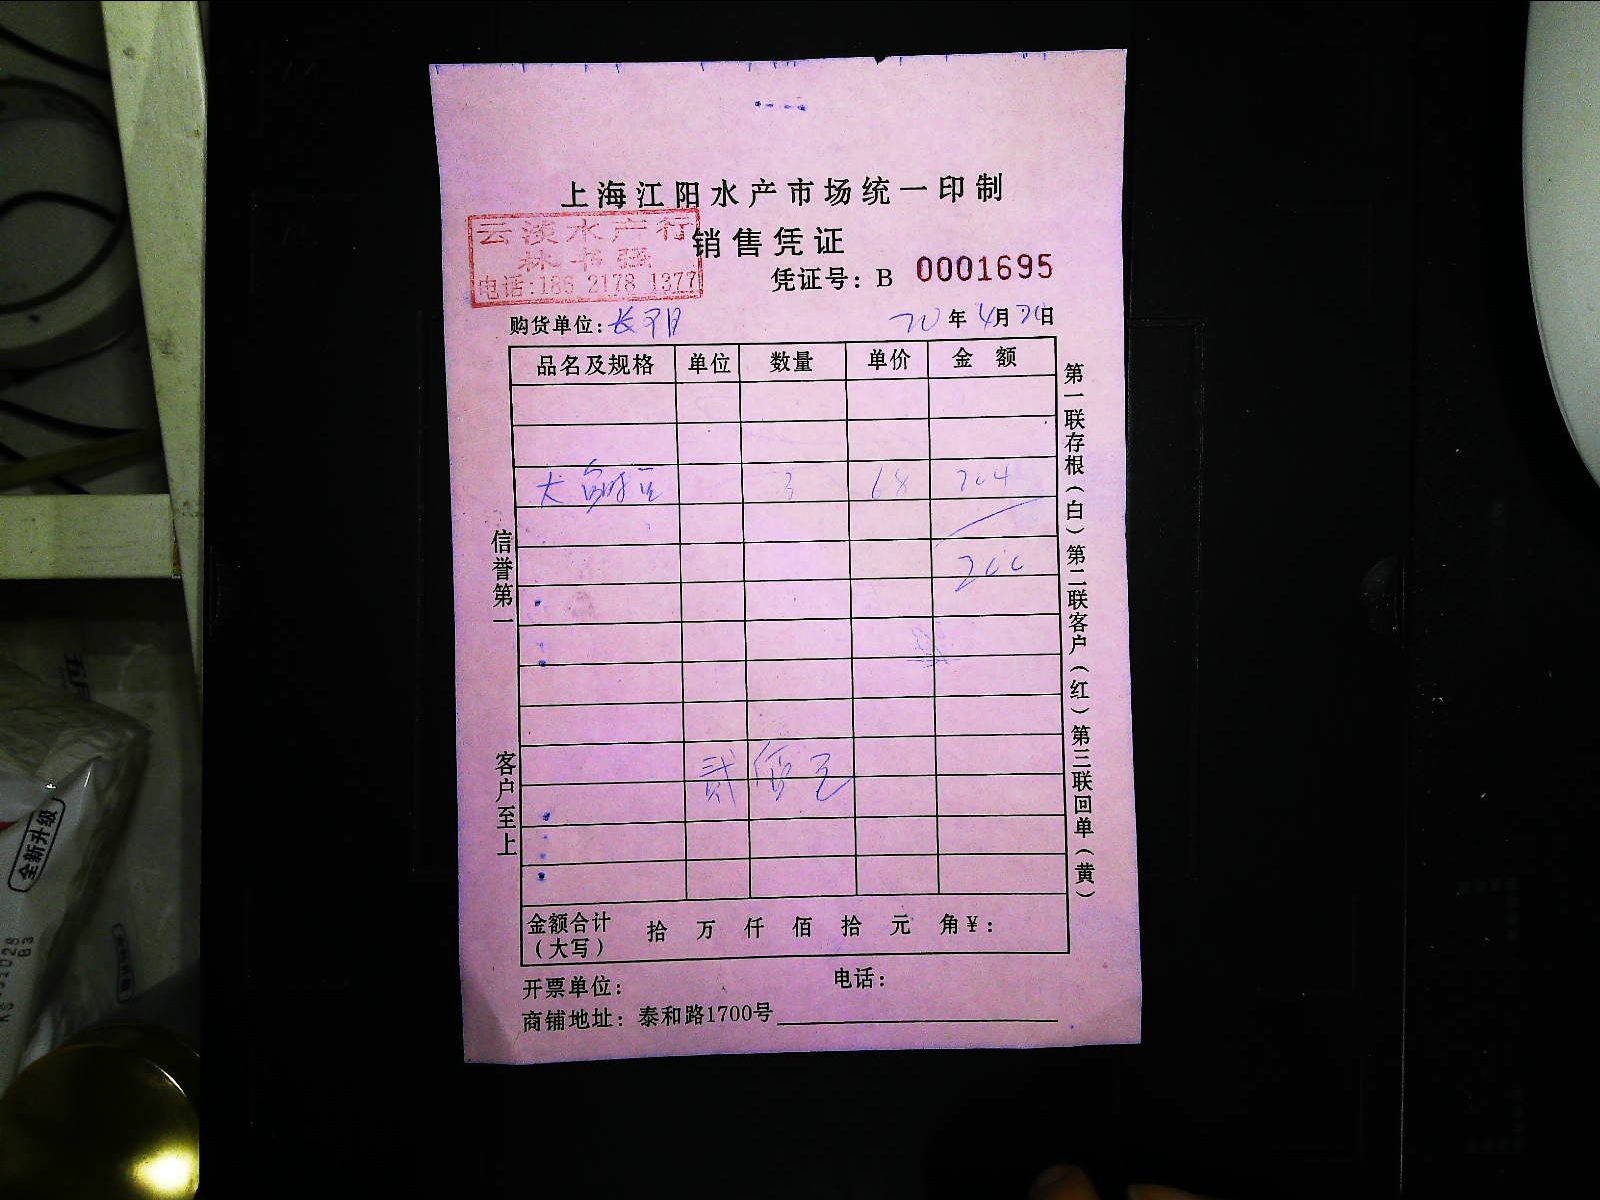 上海江阳水产市场统一印制
云淡水产行
林书强
电话:189 2178 1377
销售凭证
凭证号：B 0001695
购货单位：长阳
20年4月20日
品名及规格 单位 数量 单价 金额
大 3 68 204
200
贰佰元
金额合计（大写） 拾 万 仟 佰 拾 元 角￥：
开票单位： 电话：
商铺地址：泰和路1700号
信誉第一
客户至上
第一联存根（白）第二联客户（红）第三联回单（黄）
全新升级